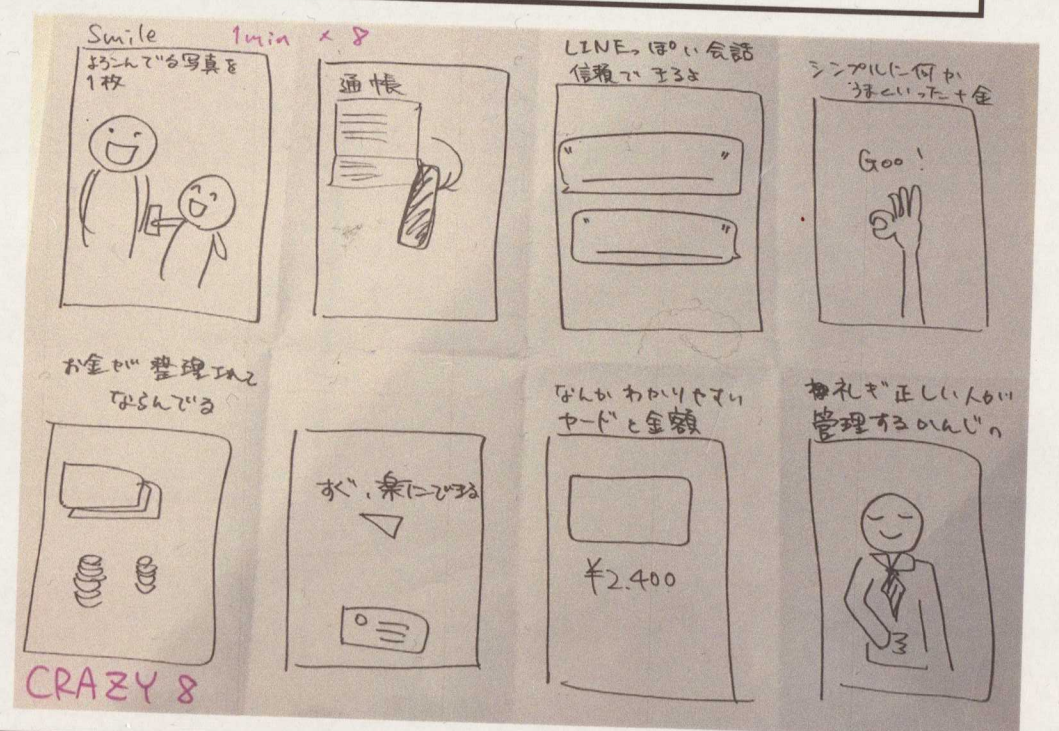 Smile
1min × 8
よろこんでる写真を
1枚
通帳
LINEっぽい会話
信頼できるよ
シンプルに何か
うまくいった+金
Goo!
お金が整理されて
ならんでる
すぐ、楽にできる
なんかわかりやすい
カードと金額
¥2.400
礼ぎ正しい人が
管理するかんじの
CRAZY 8